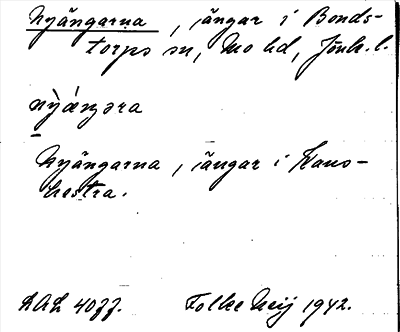 Nyängarna, ängar i Bonds-
torps sn, Mo hd, Jönk. l.
nỳǽŋəra
Nyängarna, ängar i Kans-
hestra.
LAL 4077.  Folke Meij 1942.